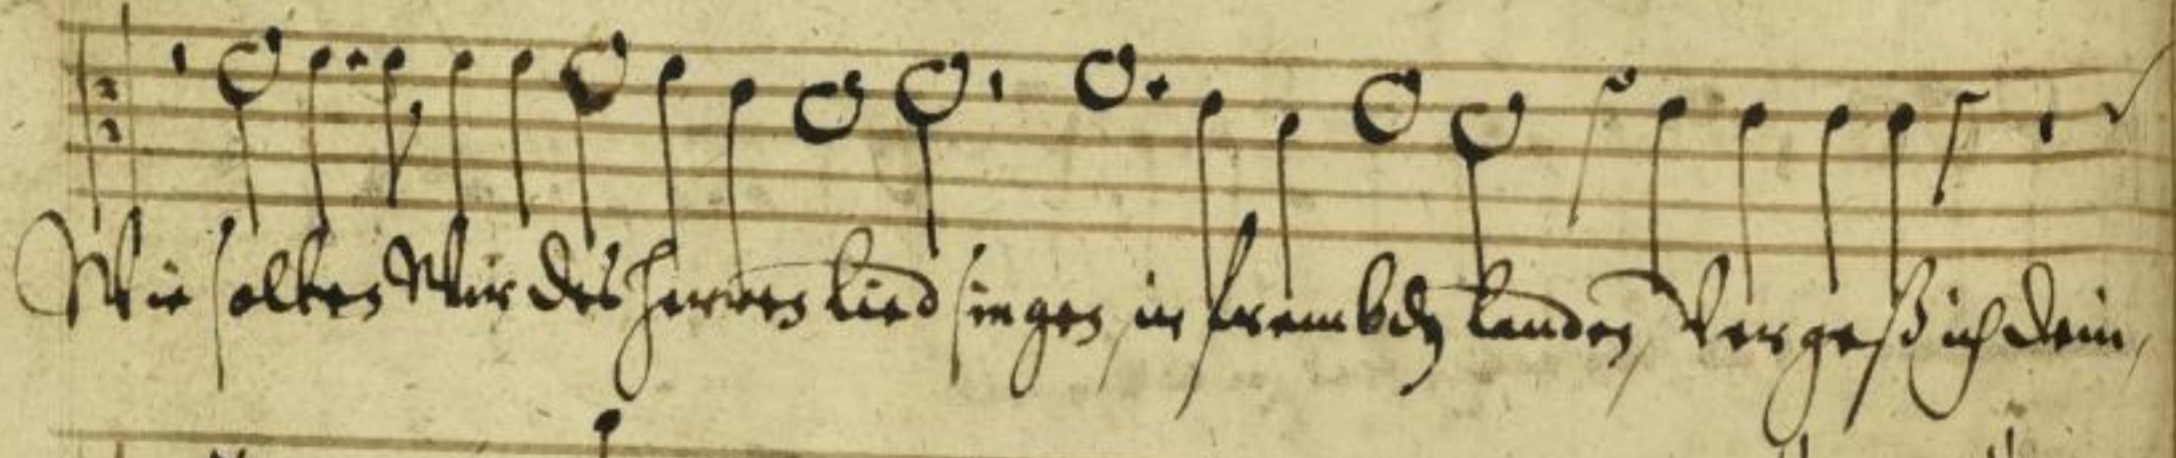 Wie solten Wir des Herren lied singen, in frembdn landen, Vergeß ich dein,